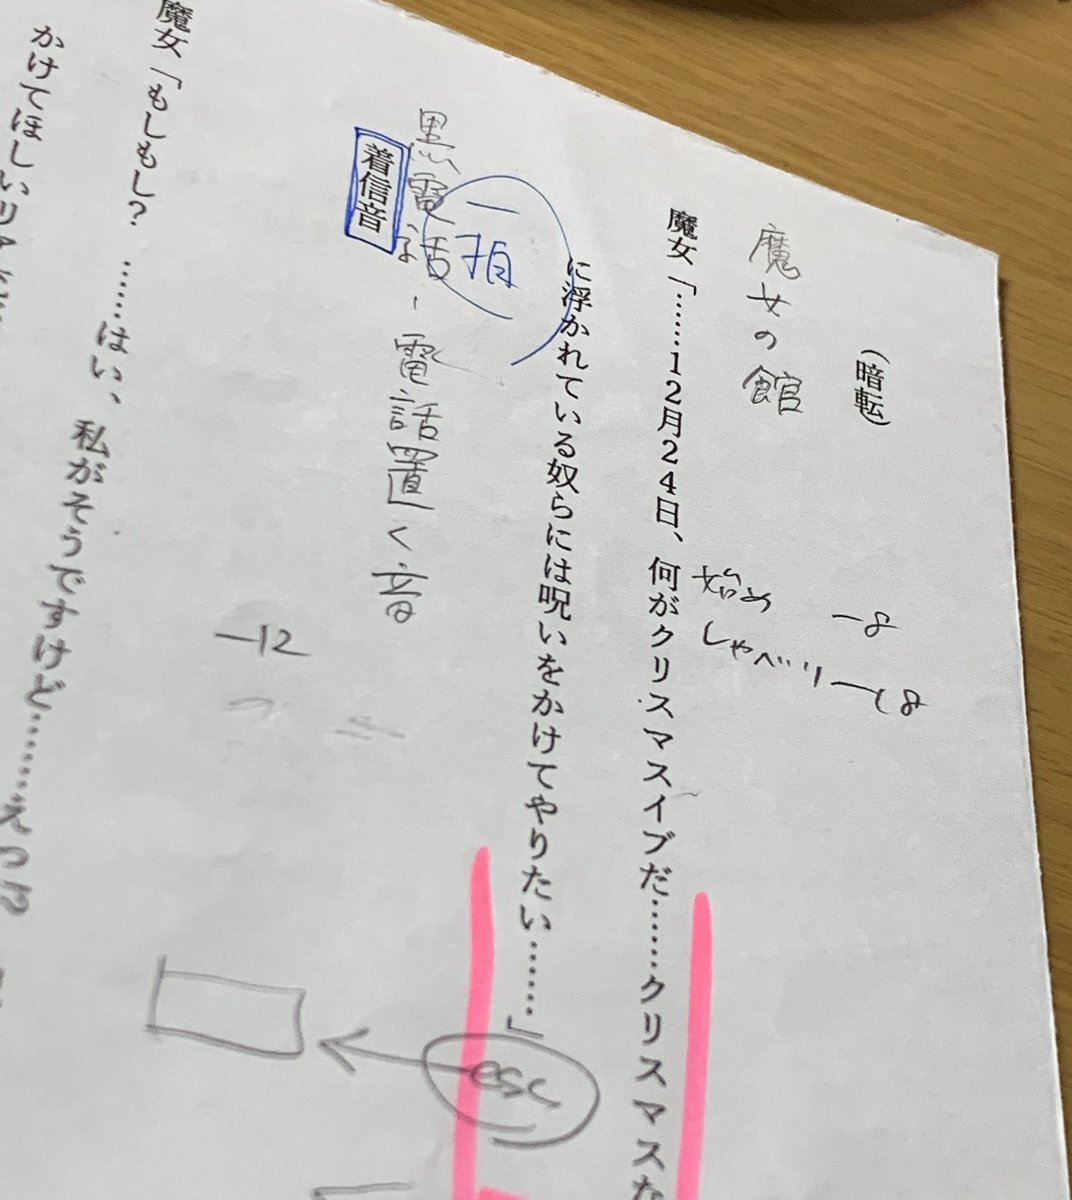 （暗転）
魔女の館
始め －8
しゃべり－18
魔女「……１２月２４日、何がクリスマスイブだ……クリスマスな
に浮かれている奴らには呪いをかけてやりたい……」
esc
一拍
黒電話－電話置く音
着信音
－12
魔女「もしもし？　……はい、私がそうですけど……えっ
かけてほしいリア